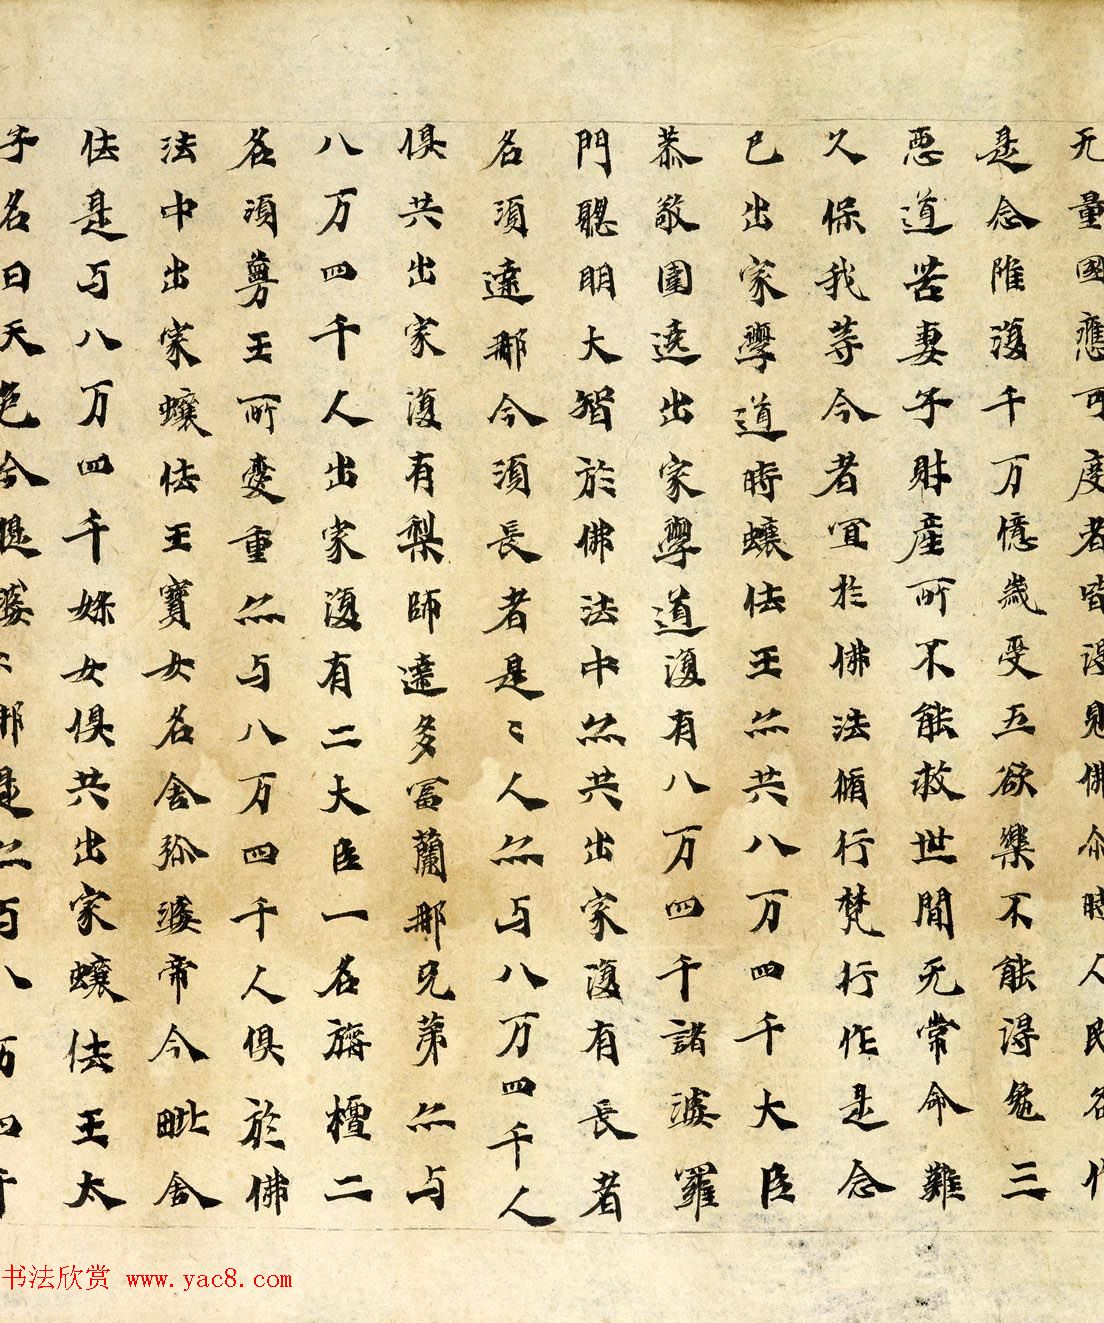 无量國應可度者皆得見佛尒時人民各作
是念雖復千万億歲受五欲樂不能得免三
惡道苦妻子財産所不能救世間无常命難
久保我等今者冝於佛法脩行梵行作是念
已出家學道時蠰佉王亦共八万四千大臣
恭敬圍遶出家學道復有八万四千諸婆羅
門聰明大智於佛法中亦共出家復有長者
名須達那今須長者是〻人亦与八万四千人
俱共出家復有梨師達多冨蘭那兄弟亦与
八万四千人出家復有二大臣一名旃檀二
名須曼王所愛重亦与八万四千人俱於佛
法中出家蠰佉王寶女名舍弥婆帝今毗舍
佉是与八万四千婇女俱共出家蠰佉王太
子名曰天色今提婆 那是亦与八万四千
书法欣赏 www.yac8.com